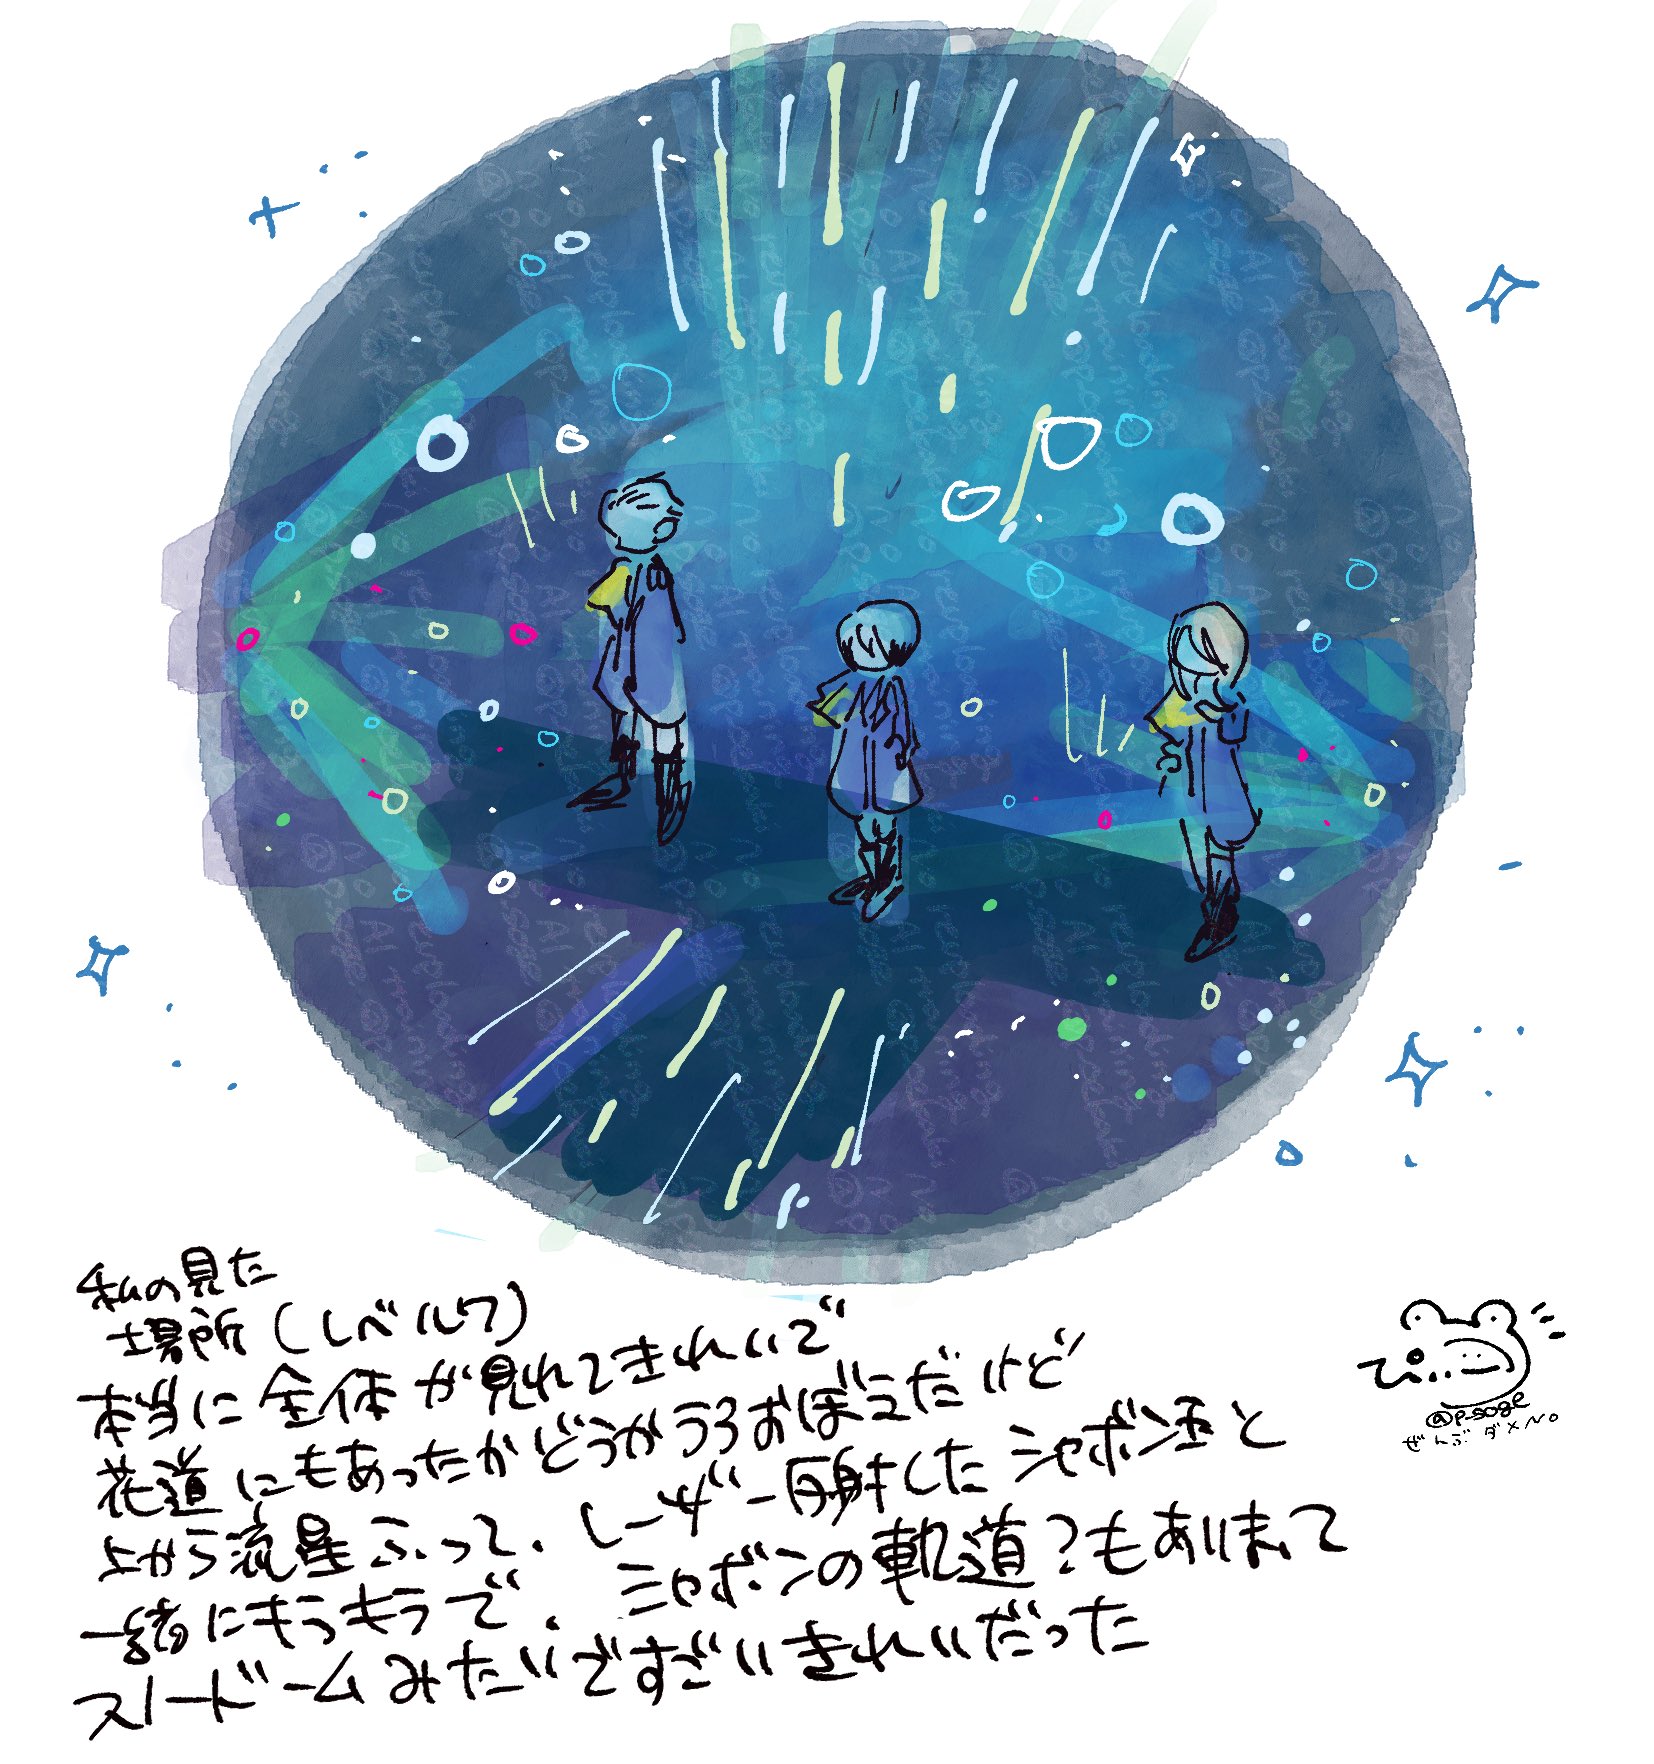 私の見た
場所(レベル7)
本当に全体が見れてきれいで
花道にもあったかどうかうろおぼえだけど
上から流星ふって、レーザー反射したシャボン玉と
一緒にキラキラで、シャボンの軌道?もあいまって
スノードームみたいですごいきれいだった
ぴぃ..
@p-soge
ぜんぶダメNO
No reuploading
No AI training
@p-soge